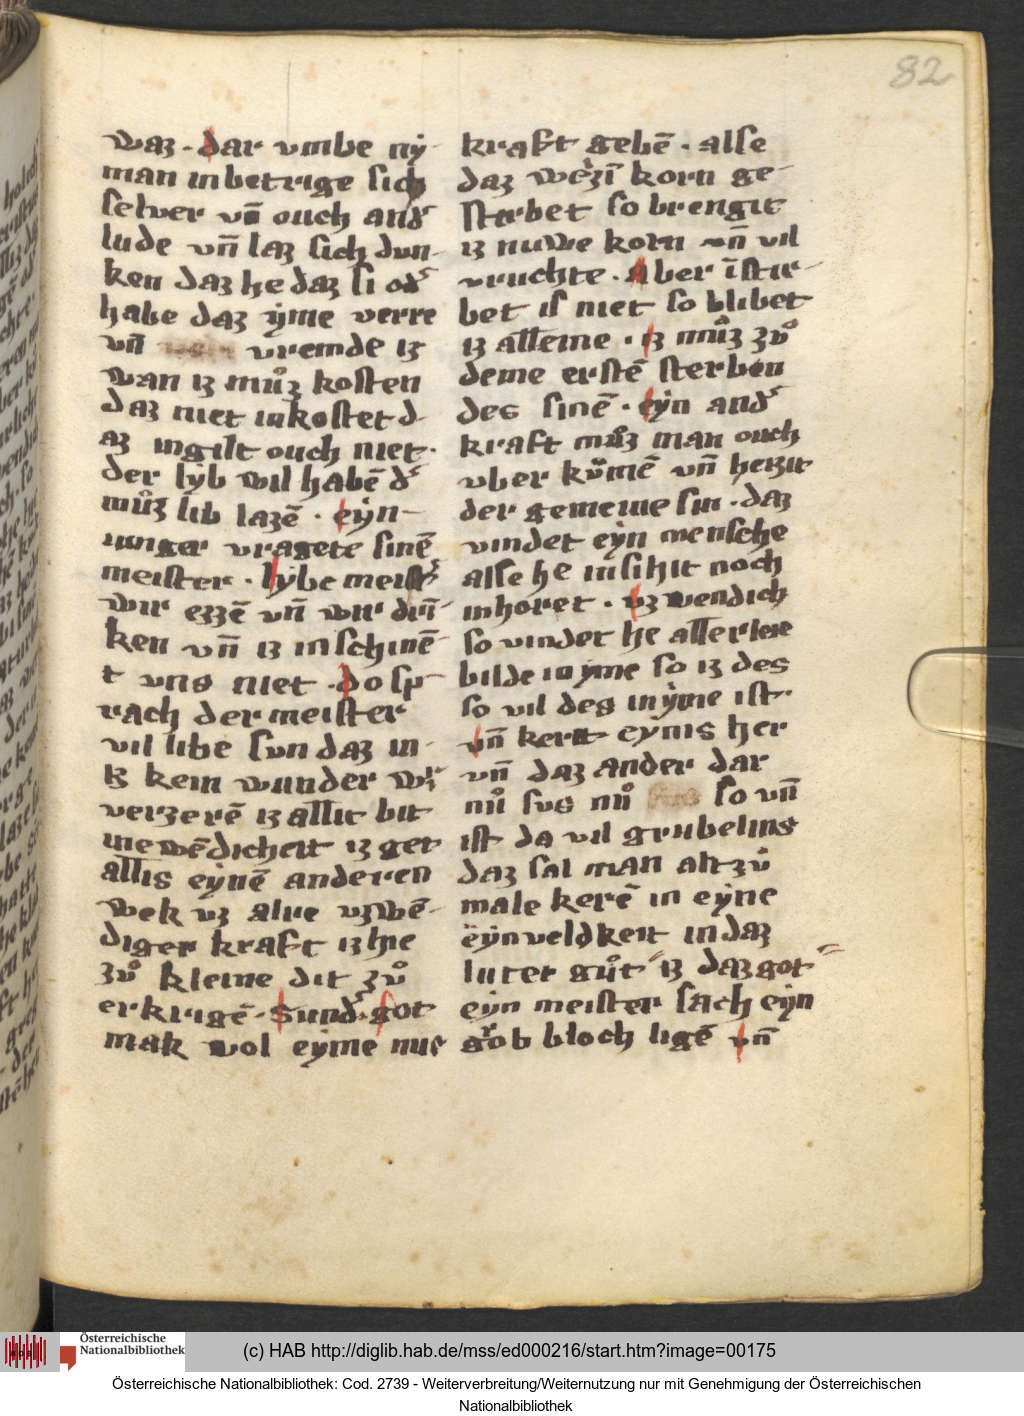 82
waz · dar vmbe ny
man inbetrige sich
seluer vn̄ ouch and͛
lude vn̄ laz sich dun
ken daz he daz si od͛
habe daz ẏme verre
vn̄ vremde iz
wan iz můz kosten
daz niet inkostet d
az ingilt ouch niet ·
der lyb wil habē d͛
můz lib lazē · eyn
iunger vragete sinē
meister · lybe meist͛
wir ezzē vn̄ wir drī
ken vn̄ iz inschinē
t vns niet · do sp
rach der meister
vil libe sun daz in
is kein wunder
verzerē iz allit bit
inewēdicheit iz get
allis eynē anderen
wek vz alue vzwē
diger kraft iz hie
zů kleine dit zů
erkrigē · Sund͛ · got
mak wol eyme nue
kraft gebē · alse
daz korn ge
sterbet so brengit
iz nuwe korn vn̄ vil
vruchte · Aber īstir
bet is niet so blibet
iz alleine · iz můz zů
deme erstē sterben
des sinē · eyn and͛
kraft můz man ouch
vber kumē vn̄ heizit
der gemeine sin · daz
vindet eyn mensche
alse he insihit noch
inhoret · vz wendich
so vindet he allerleie
bilde in yme so iz des
so vil des in ẏme ist ·
vn̄ kerit eynis her
vn̄ daz ander dar
nů sus nů so vn̄
ist da vil grubelins
daz sal man altzů
male kerē in eyne
eynueldkeit in daz
luter gůt iz daz got
eyn meister sach eyn
grob bloch ligē vn̄
Österreichische
Nationalbibliothek
(c) HAB http://diglib.hab.de/mss/ed000216/start.htm?image=00175
Österreichische Nationalbibliothek: Cod. 2739 - Weiterverbreitung/Weiternutzung nur mit Genehmigung der Österreichischen
Nationalbibliothek